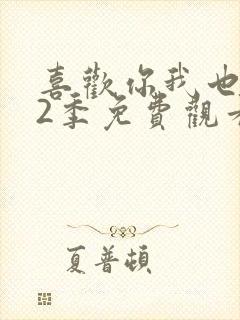 喜歡你我也
2季免費觀
夏普頓